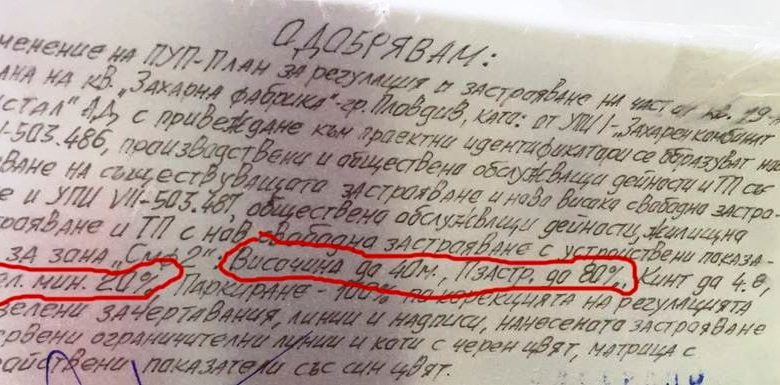 ОДОБРЯВАМ:
менение на ПУП-План за регулация и застрояване на част от кв. 19
лна на кв. „Захарна фабрика"-гр. Пловдив, като: от УПИ I-„Захарен комбинат
истал" АД, с привеждане към проектни идентификатори се образуват
I-503.486, производствени и обществено обслужващи дейности и ТП със
ване на съществуващата застрояване и нова висока свободна застро
е и УПИ VII-503.487, обществено обслужващи дейности, жилищна
трояване и ТП с нова свободна застрояване с устройствени показа-
за зона „Смф2": Височина до 40м., Пзастр. до 80%, Кинт до 4.0,
ел. мин. 20%, Паркиране - 100%, по корекцията на регулацията
зелени зачертавания, линии и надписи, нанесената застрояване
ервени ограничителни линии и коти с черен цвят, матрица с
райствени показатели със син цвят.